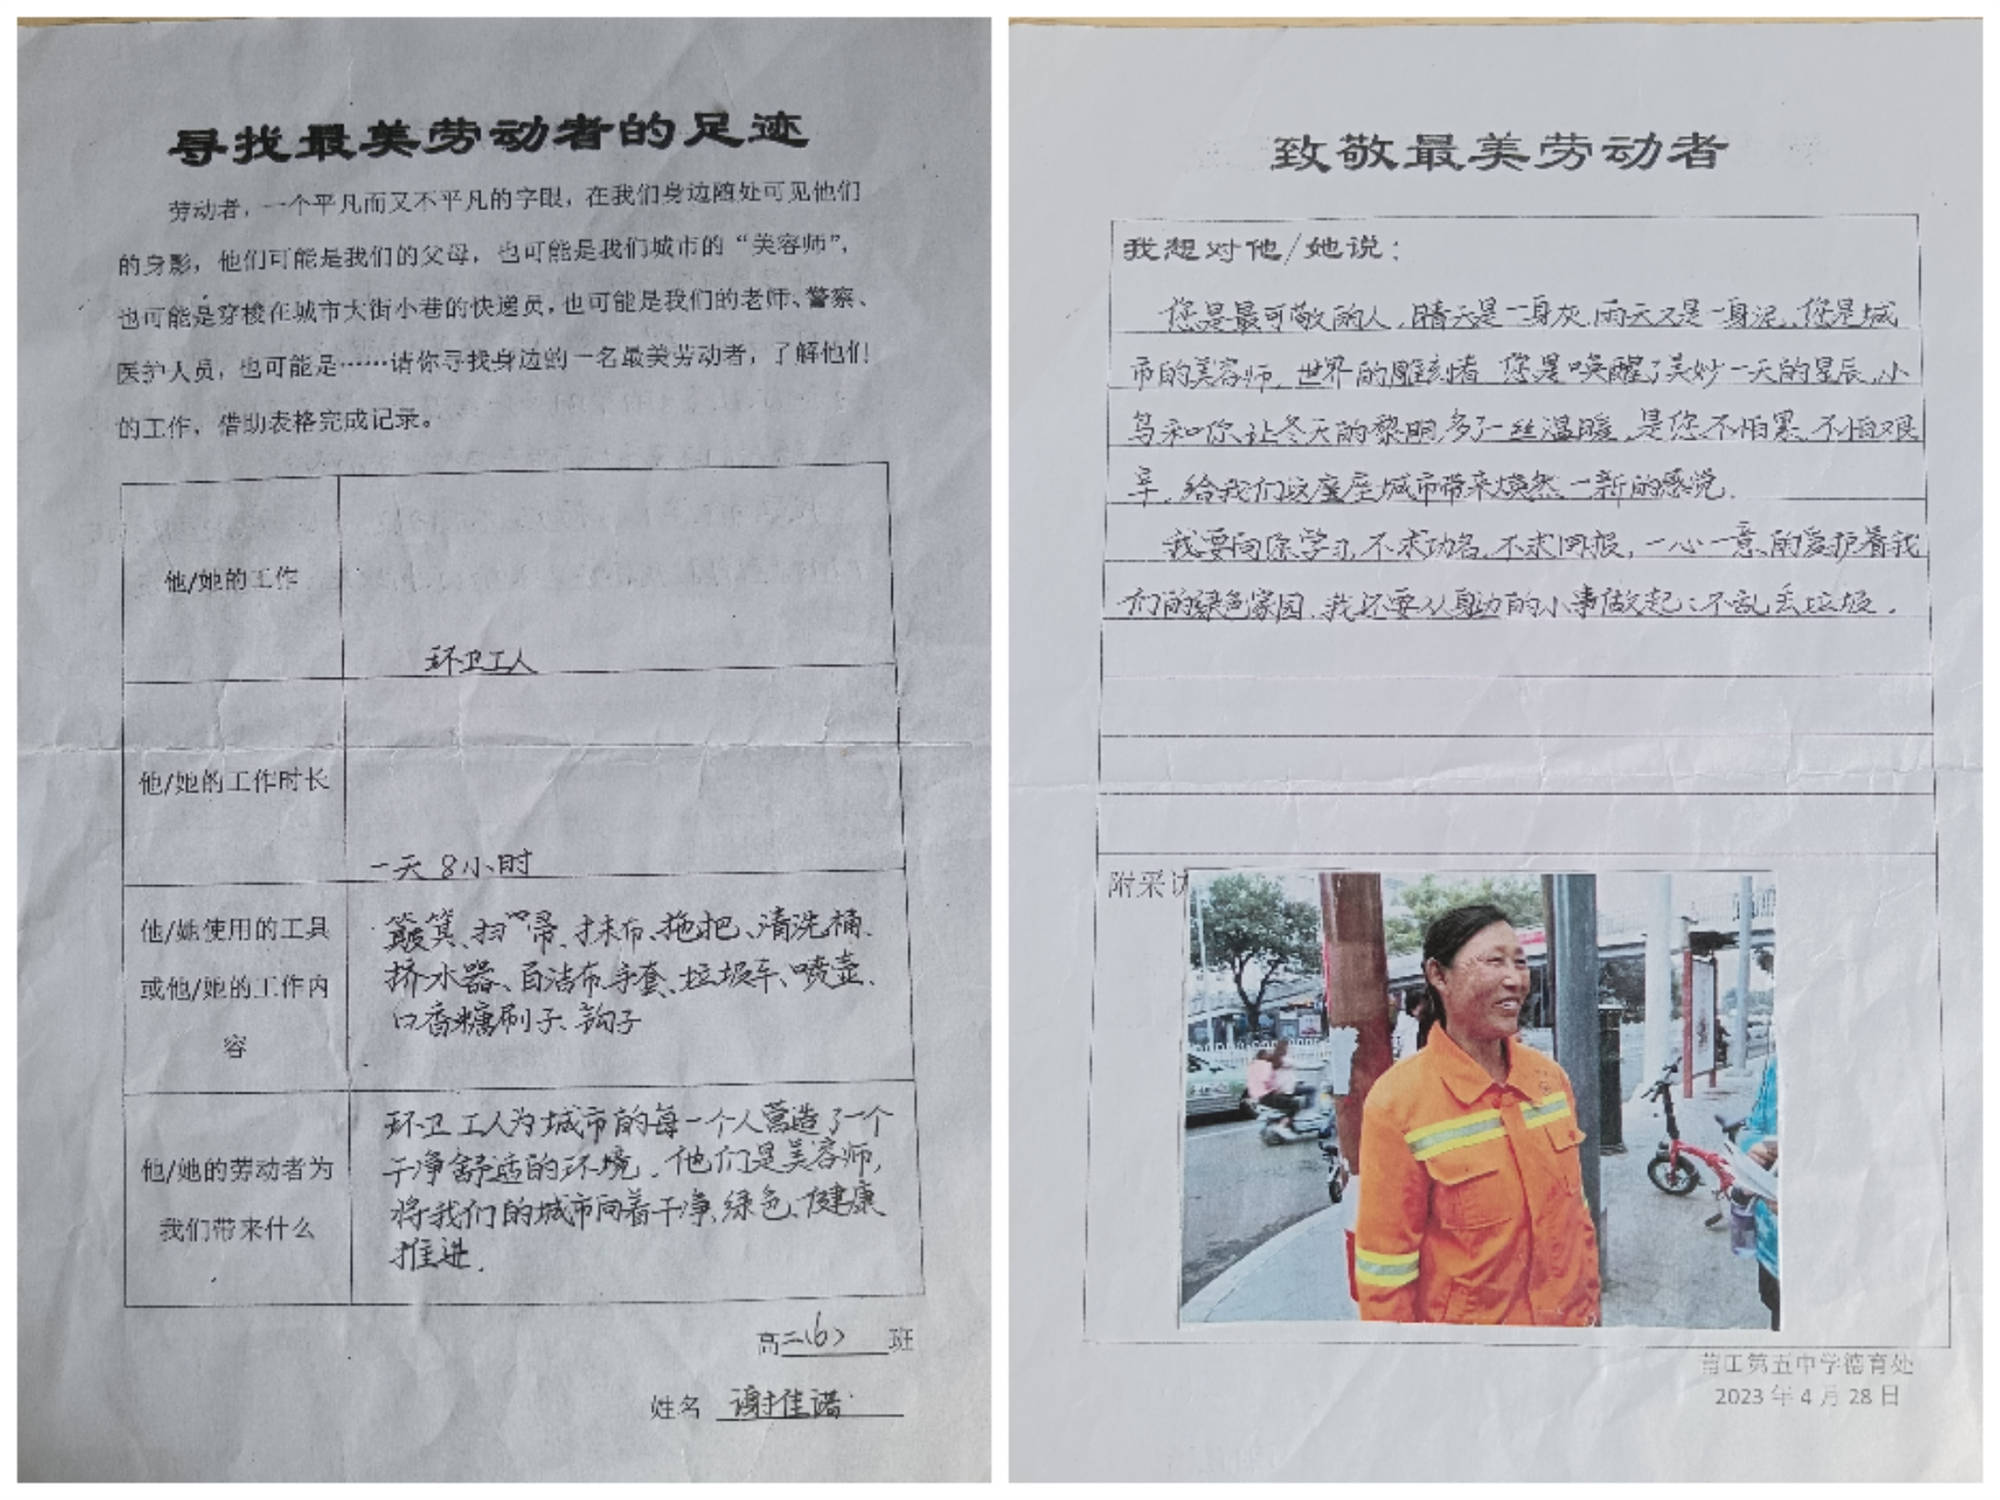 寻找最美劳动者的足迹
劳动者，一个平凡而又不平凡的字眼，在我们身边随处可见他们
的身影，他们可能是我们的父母，也可能是我们城市的“美容师”，
也可能是穿梭在城市大街小巷的快递员，也可能是我们的老师、警察、
医护人员，也可能是……请你寻找身边的一名最美劳动者，了解他们
的工作，借助表格完成记录。
他/她的工作
环卫工人
他/她的工作时长
一天8小时
他/她使用的工具
或他/她的工作内
容
簸箕、扫帚、抹布、拖把、清洗桶、
挤水器、百洁布、手套、垃圾车、喷壶、
口香糖刷子、钩子
他/她的劳动者为
我们带来什么
环卫工人为城市的每一个人营造了一个
干净舒适的环境．他们是美容师，
将我们的城市向着干净、绿色、健康
推进．
高二(6)班
姓名 谢佳诺
致敬最美劳动者
我想对他/她说：
您是最可敬的人，晴天是一身灰，雨天又是一身泥．您是城
市的美容师，世界的雕刻者．您是唤醒了美妙一天的星辰，小
鸟和你让冬天的黎明多了一丝温暖，是您不怕累、不怕艰
辛，给我们这座座城市带来焕然一新的感觉．
我要向您学习，不求功名，不求回报，一心一意的爱护着我
们的绿色家园．我还要从身边的小事做起：不乱丢垃圾．
附采访
第五中学德育处
2023年4月28日